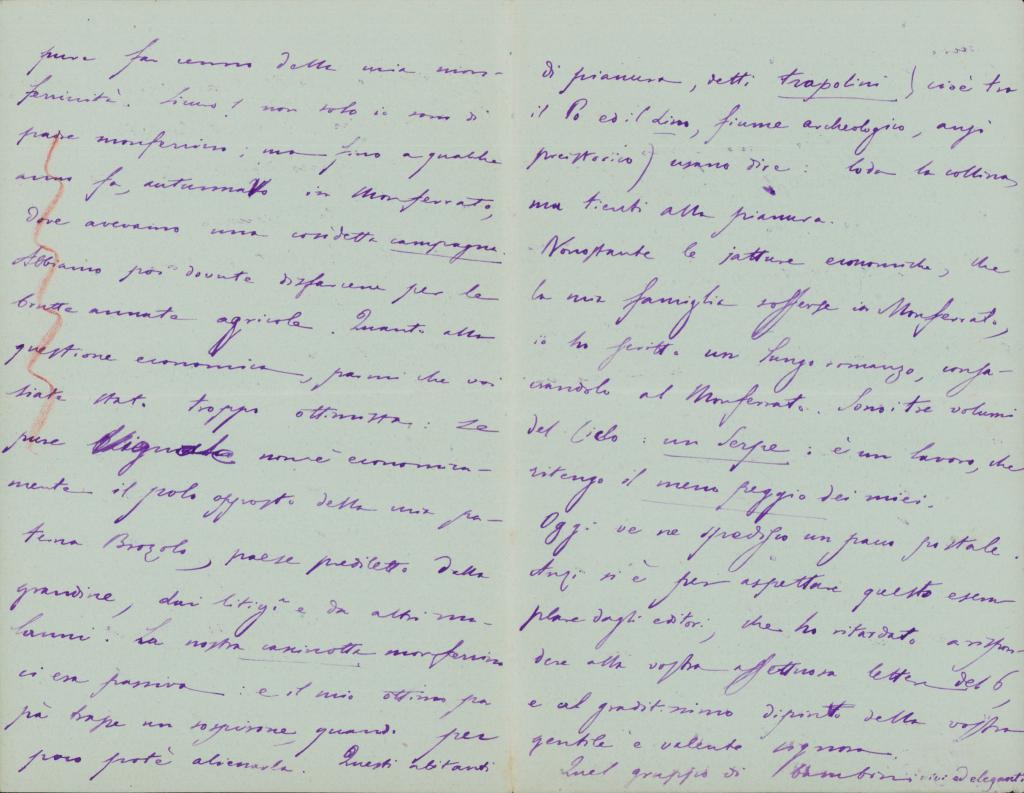 pure far cenno della mia mon-
ferrinità. Sicuro! non solo io sono di
padre monferrino; ma fino a qualche
anno fa, autunnavo in Monferrato,
dove avevamo una cosidetta campagna.
Abbiamo poi dovuto disfarcene per le
brutte annate agricole. Quanto alla
questione economica, parmi che voi
siate stato troppo ottimista: se
pure Vignale non è economica-
mente il polo opposto della mia pa-
terna Brozolo, paese prediletto dalla
grandine, dai litigi e da altri ma-
lanni. La nostra cascinotta monferrina
ci era passiva: e il mio ottimo pa
pà trasse un sospirone, quando per
poco potè alienarla. Questi abitanti
di pianura, detti trapolini (cioè tra
il Po ed il , fiume archeologico, anzi
preistorico) usano dire: loda la collina,
ma tienti alla pianura.
Nonostante le jatture economiche, che
la mia famiglia sofferse in Monferrato,
io ho scritto un lungo romanzo, consa-
crandolo al Monferrato. Sono i tre volumi
del Ciclo: un Serpe: è un lavoro, che
ritengo il meno peggio dei miei.
Oggi ve ne spedisco un pacco postale.
Anzi si è per aspettare questo esem
plare dagli editori, che ho ritardato a rispon-
dere alla vostra affettuosa lettera del 6
e al graditissimo dipinto della vostra
gentile e valente signora.
Quel gruppo di bambini vivi ed eleganti